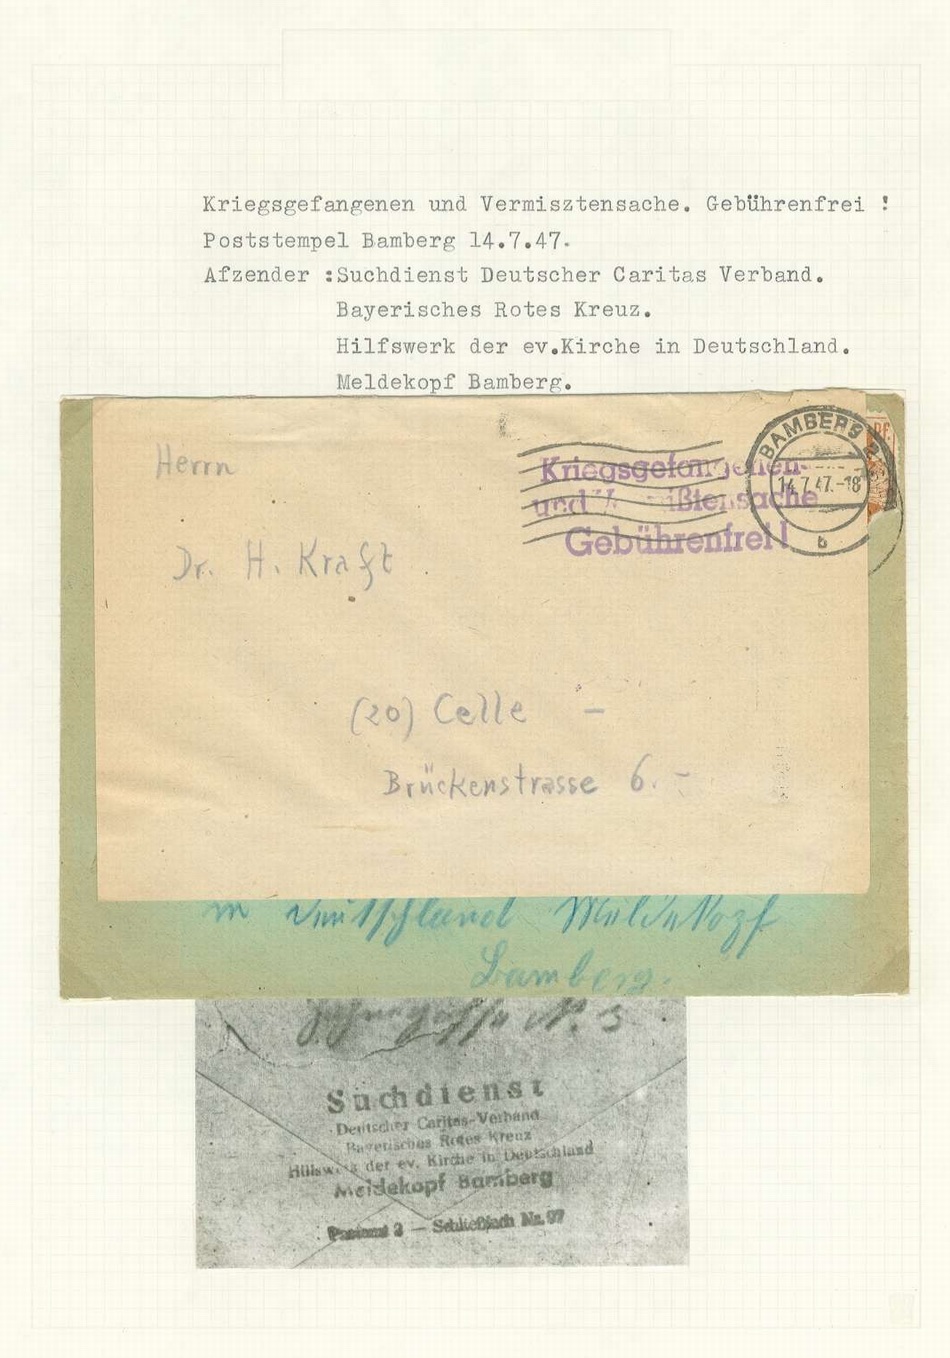 Kriegsgefangenen und Vermisztensache. Gebührenfrei !
Poststempel Bamberg 14.7.47.
Afzender :Suchdienst Deutscher Caritas Verband.
Bayerisches Rotes Kreuz.
Hilfswerk der ev.Kirche in Deutschland.
Meldekopf Bamberg.
Herrn
Kriegsgefangenen-
und Vermißtensache
Gebührenfrei!
BAMBERG 2
14.7.47.-18
b
Pf.
Dr. H. Kraft
(20) Celle -
Brückenstrasse 6.-
in Deutschland Meldekopf
Bamberg.
N. 3
Suchdienst
Deutscher Caritas-Verband
Bayerisches Rotes Kreuz
Hilfswerk der ev. Kirche in Deutschland
Meldekopf Bamberg
Postamt 2 — Schließfach Nr. 97